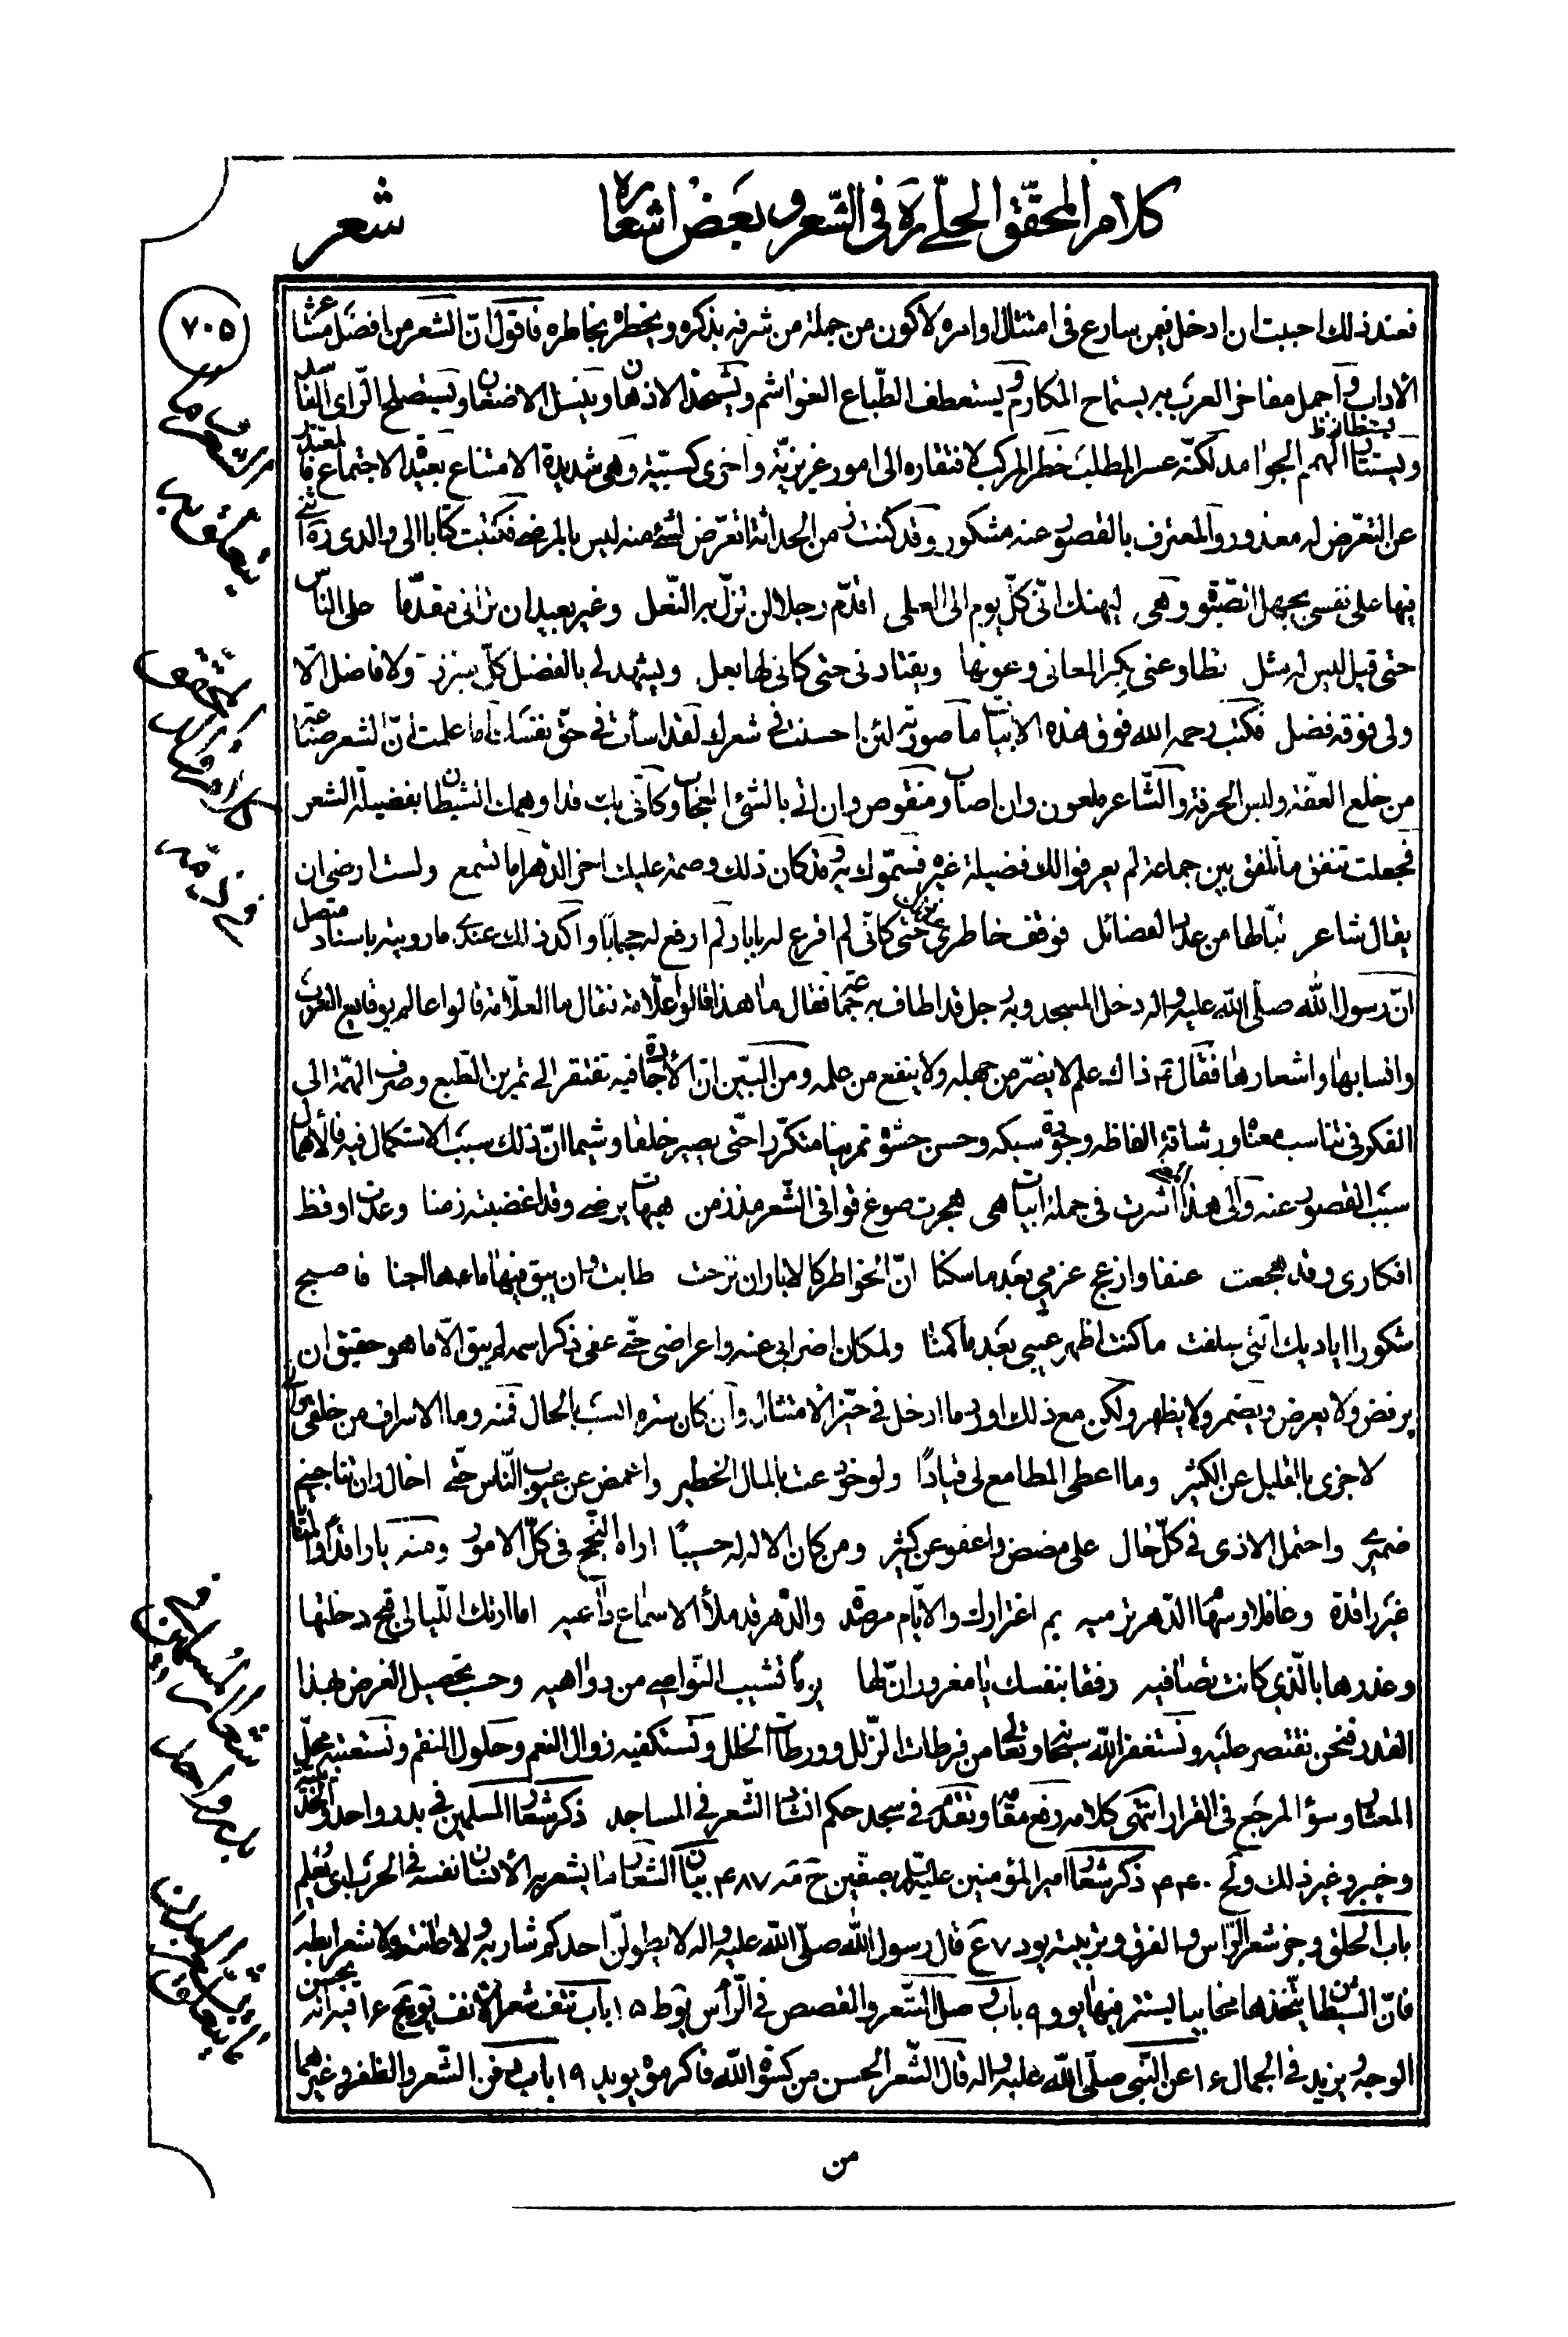 كلام المحقق الحلّي ره في الشعر وبعض اشعاره
شعر
٧٠٥
فعند ذلك احببت ان ادخل فيمن سارع في امتثال اوامره لاكون من جملة من شرفه بذكره ويخطره بخاطره فاقول انّ الشعر من افضل مشاعر
الأداب واجمل مفاخر العرب به يستماح المكارم ويستعطف الطّباع الغواشم ويشحذ الاذهان ويسل الاضغان ويستصلح الرّاى الفاسد
ويستثار الهمم الجوامد لكنّه عسر المطلب خطر المركب لافتقاره الى امور غريزيّة واخرى كسبيّة وهى شديدة الامتناع بعيدة الاجتماع فالمعتذر
عن التعرّض له معذور والمعترف بالقصور عنه مشكور وقد كنت زمن الحداثة اتعرّض لشئ منه ليس بالمرضي فكتبت كتابا الى والدى ره اثنى
فيها على نفسى بجهل الصّبوة وهى ليهنك انّى كلّ يوم الى العلى اقدّم رجلا لن تزلّ بها النّعل وغير بعيد ان ترانى مقدّما على الناس
حتى قيل ليس له مثل تطاوعنى بكر المعانى وعونها وينقاد لى حتى كانى لها بعل ويشهد لى بالفضل كلّ مبرز ولا فاضل الّا
ولى فوقه فضل فكتب رحمه الله فوق هذه الابيات ما صورته لئن احسنت في شعرك لقد اسأت في حقّ نفسك أما علمت انّ الشعر صناعة
من خلع العفّة ولبس الحرفة والشّاعر ملعون وان اصاب ومنقوص وان اتى بالشئ العجاب وكانّى بك قد اوهمك الشيطان بفضيلة الشعر
فجعلت تنفق ما تلفق بين جماعة لم يعرفوا لك فضيلة غيره فسمّوك به وقد كان ذلك وصمة عليك اخر الدّهر اما تسمع ولست ارضى ان
يقال شاعر تبّا لها من عدد الفضائل فوقف خاطرى عند ذلك حتى كانّى لم اقرع له بابا ولم ارفع له حجابا واكد ذلك عندى ما رويته باسناد متصل
انّ رسول الله صلّى الله عليه واله دخل المسجد وبه رجل قد اطاف به جماعة فقال ما هذا قالوا علّامة فقال ما العلّامة قالوا عالم بوقايع العرب
وانسابها واشعارها فقال ص ذاك علم لا يضرّ من جهله ولا ينفع من علمه ومن البيّن انّ الأجادة فيه تفتقر الى تمرين الطّبع وصرف الهمّة الى
الفكر في تناسب معناه ورشاقة الفاظه وجودة سبكه وحسن حشوه تمرينا متكرّرا حتّى يصير خلقا وشيما انّ ذلك سبب الاستكمال فيه فالأهمال
سبب القصور عنه والى هذا المعنى اشرت في جملة ابيات هى هجرت صوغ قوافى الشّعر مذ زمن هيهات يرضى وقد اغضبته زمنا وعدت اوقظ
افكارى وقد هجعت عنفا وازعج عزمى بعد ما سكنا انّ الخواطر كالابار ان نزحت طابت وان يبق فيها ماءها اجنا فاصبح
شكورا اياديك الّتى سلفت ما كنت اظهر عيبى بعد ما كمنا ولمكان اضرابى عنه واعراضى حتّى عفى ذكر اسمه لم يبق الّا ما هو حقيق ان
يرفض ولا يعرض ويضمر ولا يظهر ولكن مع ذلك اورد ما ادخل في حيّز الامتثال وان كان ستره انسب بالحال فمنه وما الاسراف من خلقى وانى
لاجزى بالقليل عن الكثير وما اعطى المطامع لى قيادًا ولو خودعت بالمال الخطير واغمض عن عيوب النّاس حتى اخال وان تناجينى
ضميرى واحتمل الاذى في كلّ حال على مضض واعفو عن كثير ومن كان الاله له حسيبًا اراه النّجح في كلّ الامور ومنه يا راقدًا والمنايا
غير راقدة وغافلا وسهام الدّهر ترميه بم اغترارك والايّام مرصدة والدّهر قد ملأ الاسماع داعيه اما ارتك اللّيالى قبح دخلتها
وغدرها بالّذى كانت تصافيه رفقا بنفسك يا مغرور انّ لها يومًا تشيب النّواصى من دواهيه وحسب تحصيل الغرض بهذا
القدر فنحن نقتصر عليه ونستغفر الله سبحانه وتعالى من فرطات الزّلل وورطات الخلل ونستكفيه زوال النعم وحلول النقم ونستعتبه محلّ
العثار وسوء المرجع في القرار انتهى كلامه رفع مقامه وتقدّم في سجد حكم انشاد الشّعر في المساجد ذكر شعار المسلمين في بدر واحد والخندق
وخيبر وغير ذلك ذكر شعار امير المؤمنين عليه السّلم بصفّين ح مه ٤٨٧ بيان الشّعار ما يشعر به الأنسان نفسه في الحرب اى يعلم
باب الحلق وجز شعر الرّاس والفرق وتربيته يو د ٧ ع قال رسول الله صلّى الله عليه واله لا يطولنّ احدكم شاربه ولا عانته ولا شعر ابطه
فانّ الشيطان يتّخذها مخابيا يستتر فيها يو و ٩ باب وصل الشّعر والقصص في الرّأس يو ط ١٥ باب نتف شعر الانف يو يج ١٦ فيه انه يحسن
الوجه ويزيد في الجمال ١٦ عن النّبى صلّى الله عليه واله قال الشّعر الحسن من كسوة الله فاكرموه يو يد ١٩ باب دفن الشّعر والظفر وغيرهما
من